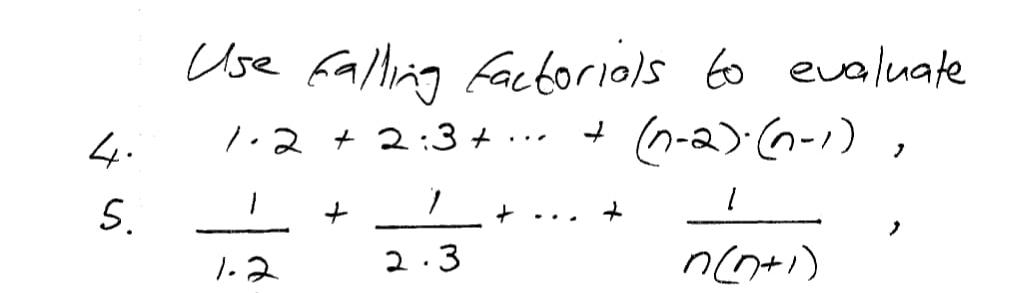 Use falling factorials to evaluate
4. 1·2 + 2·3 + ... + (n-2)·(n-1) ,
5. 1/1·2 + 1/2·3 + ... + 1/n(n+1) ,